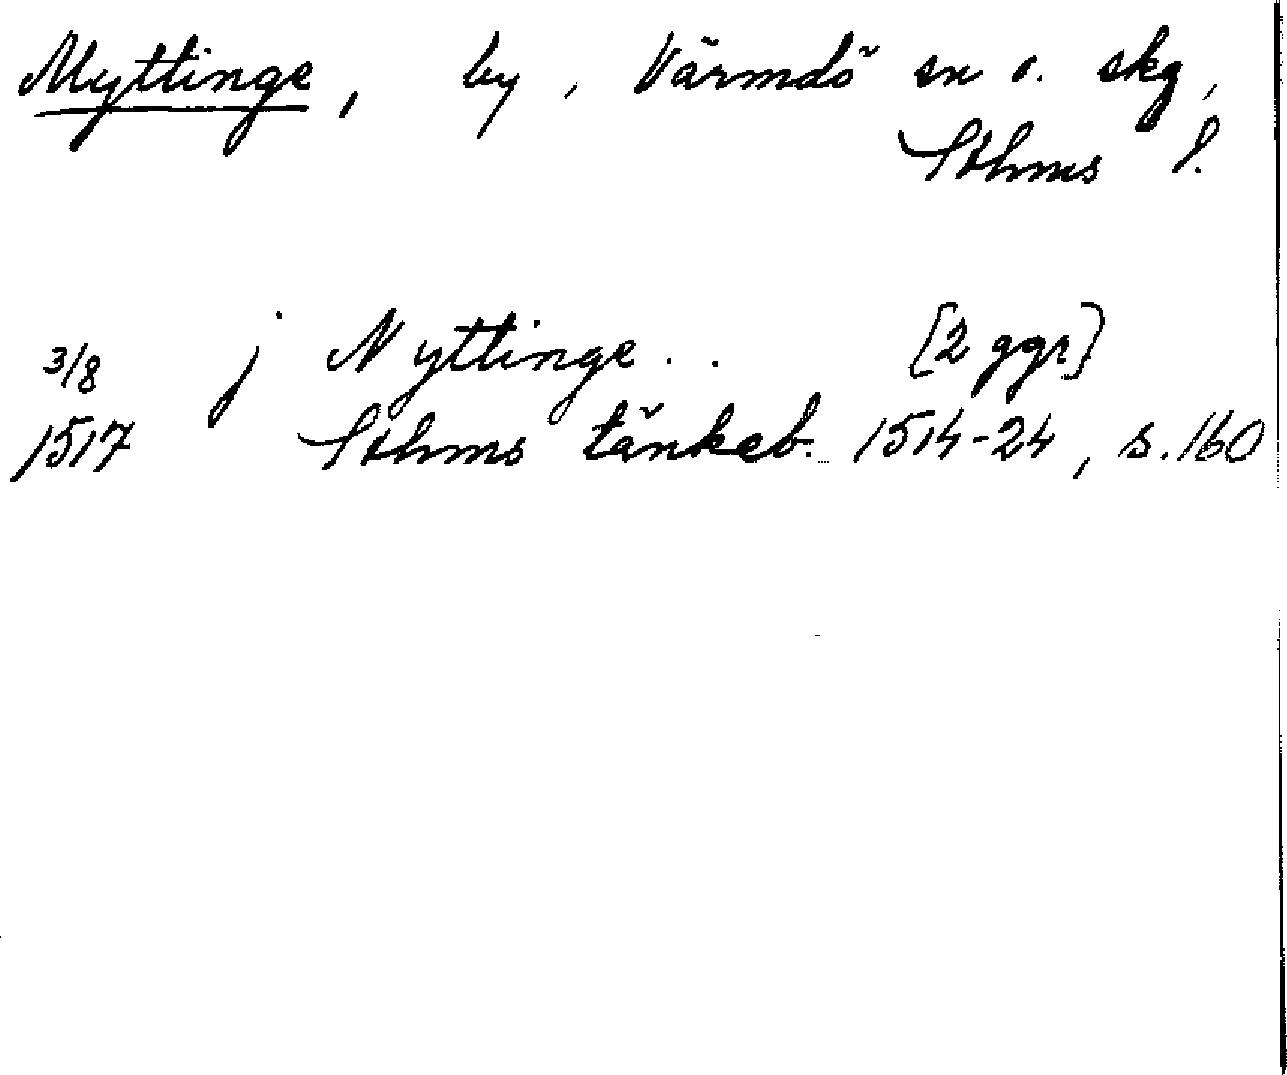 Myttinge, by, Värmdö sn o. skg,
Sthms l.
3/8 j Nyttinge . . [2 ggr]
1517 Sthms tänkeb. 1514-24, s. 160